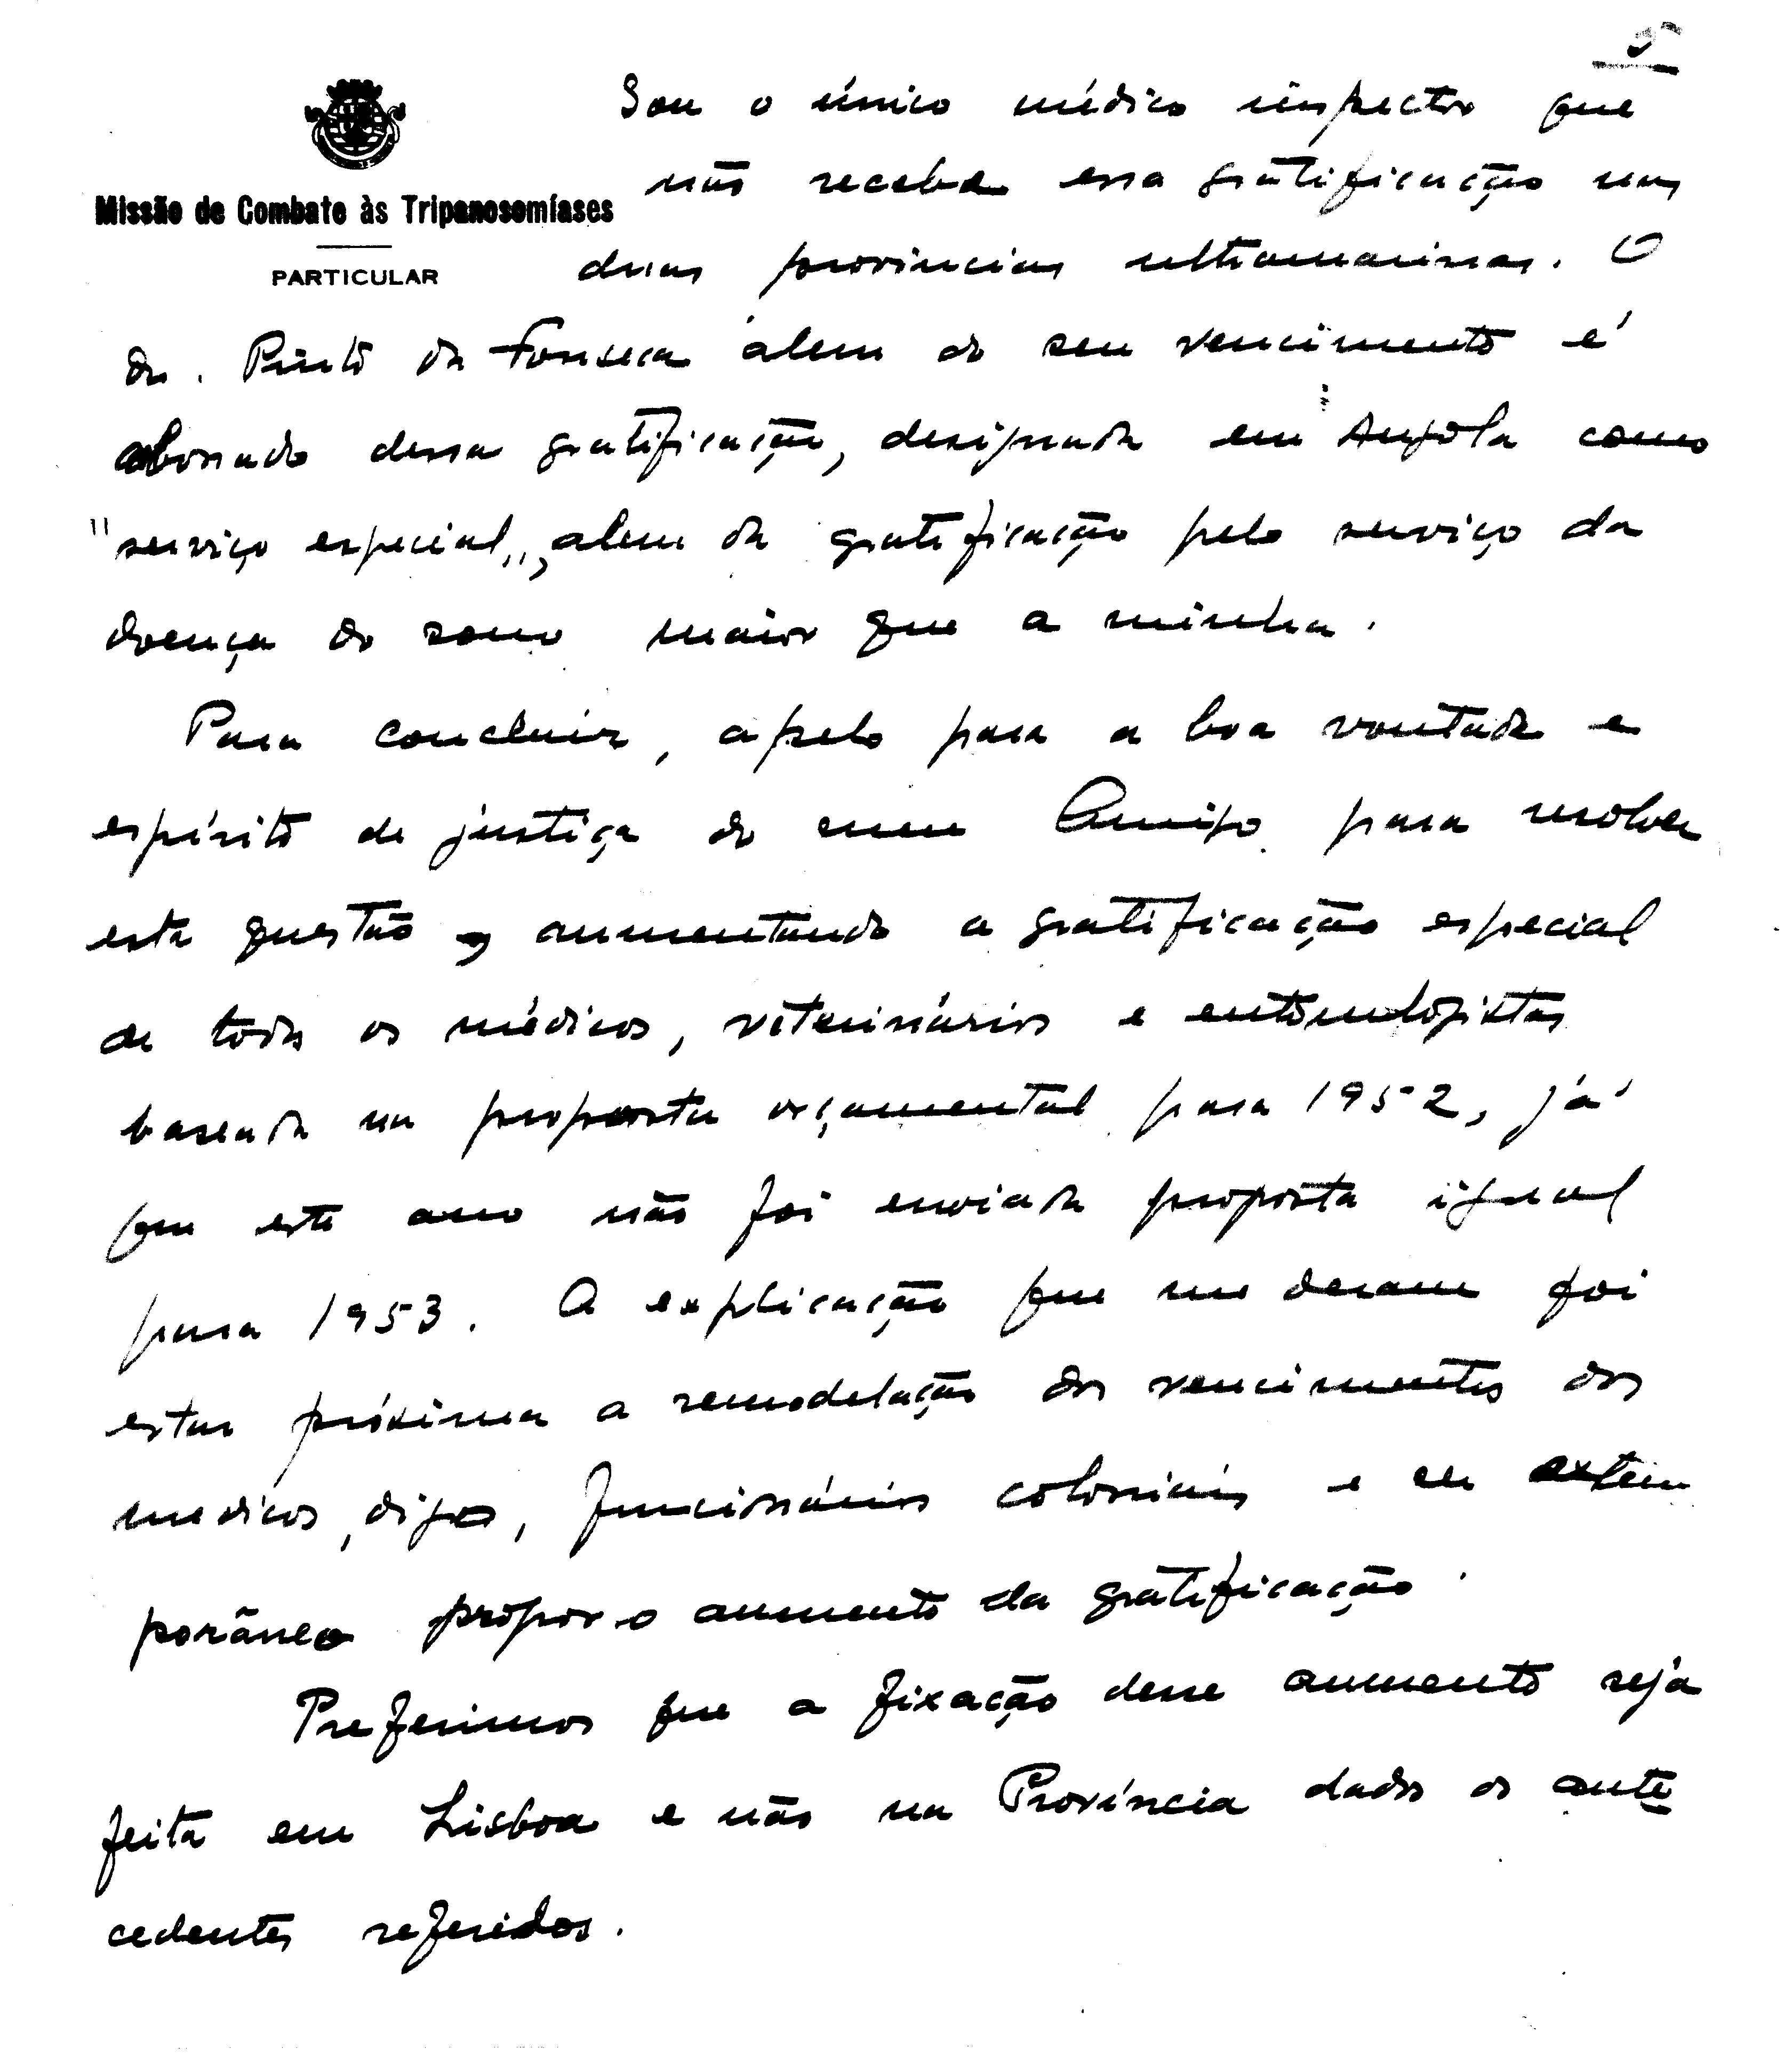 5
Sou o único médico inspector que
Missão de Combate às Tripanosomíases
não recebe essa gratificação nas
PARTICULAR
duas provincias ultramarinas. O
dr. Pinto da Fonseca alem do seu vencimento é
abonado dessa gratificação, designada em Angola como
"serviço especial", alem da gratificação pelo serviço da
doença do sono maior que a minha.
Para concluir, apelo para a boa vontade e
espírito de justiça do meu Amigo para resolver
esta questão, aumentando a gratificação especial
de todos os médicos, veterinários e entomologistas
baseada na proposta orçamental para 1952, já
que este ano não foi enviada proposta igual
para 1953. A explicação que me deram foi
estar próxima a remodelação dos vencimentos dos
medicos, digo, funcionários coloniais e ser extem
porâneo propor o aumento da gratificação.
Preferimos que a fixação desse aumento seja
feita em Lisboa e não na Província dados os ante
cedentes referidos.